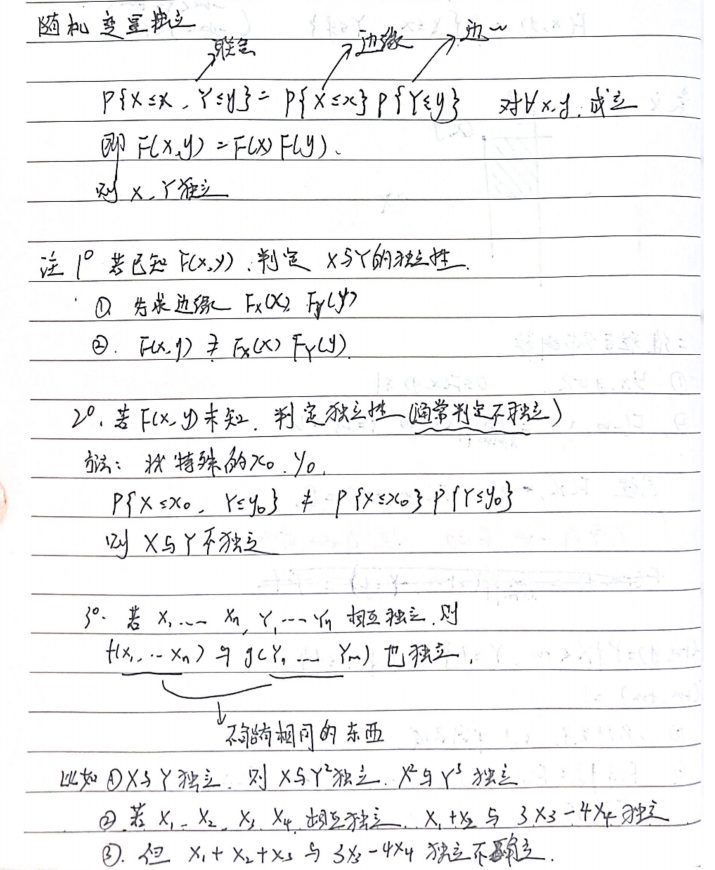 随机变量独立
联合 边缘 边~
P{X≤x, Y≤y} = P{X≤x} P{Y≤y} 对∀x,y,成立
即 F(x,y) = F(x) F(y).
则 X、Y独立
注 1° 若已知 F(x,y),判定 X与Y的独立性.
① 先求边缘 Fx(x), Fy(y)
②. F(x,y) Fx(x) FY(y)
2°. 若 F(x,y)未知. 判定独立性 (通常判定不独立)
方法: 找特殊的x0. y0.
P{X≤x0, Y≤y0} ≠ P{X≤x0} P{Y≤y0}
则 X与Y不独立
3°. 若 X1 ... Xn, Y1 ... Yn 相互独立,则
f(X1, ... Xn) 与 g(Y1, ... Ym) 也独立,
不能有相同的东西
比如 ①X与Y独立. 则 X与Y²独立. X²与Y³独立
②.若 X1. X2, X3, X4 相互独立. X1+X2 与 3X3-4X4 独立
③. 但 X1+X2+X3 与 3X3-4X4 独立不确定.